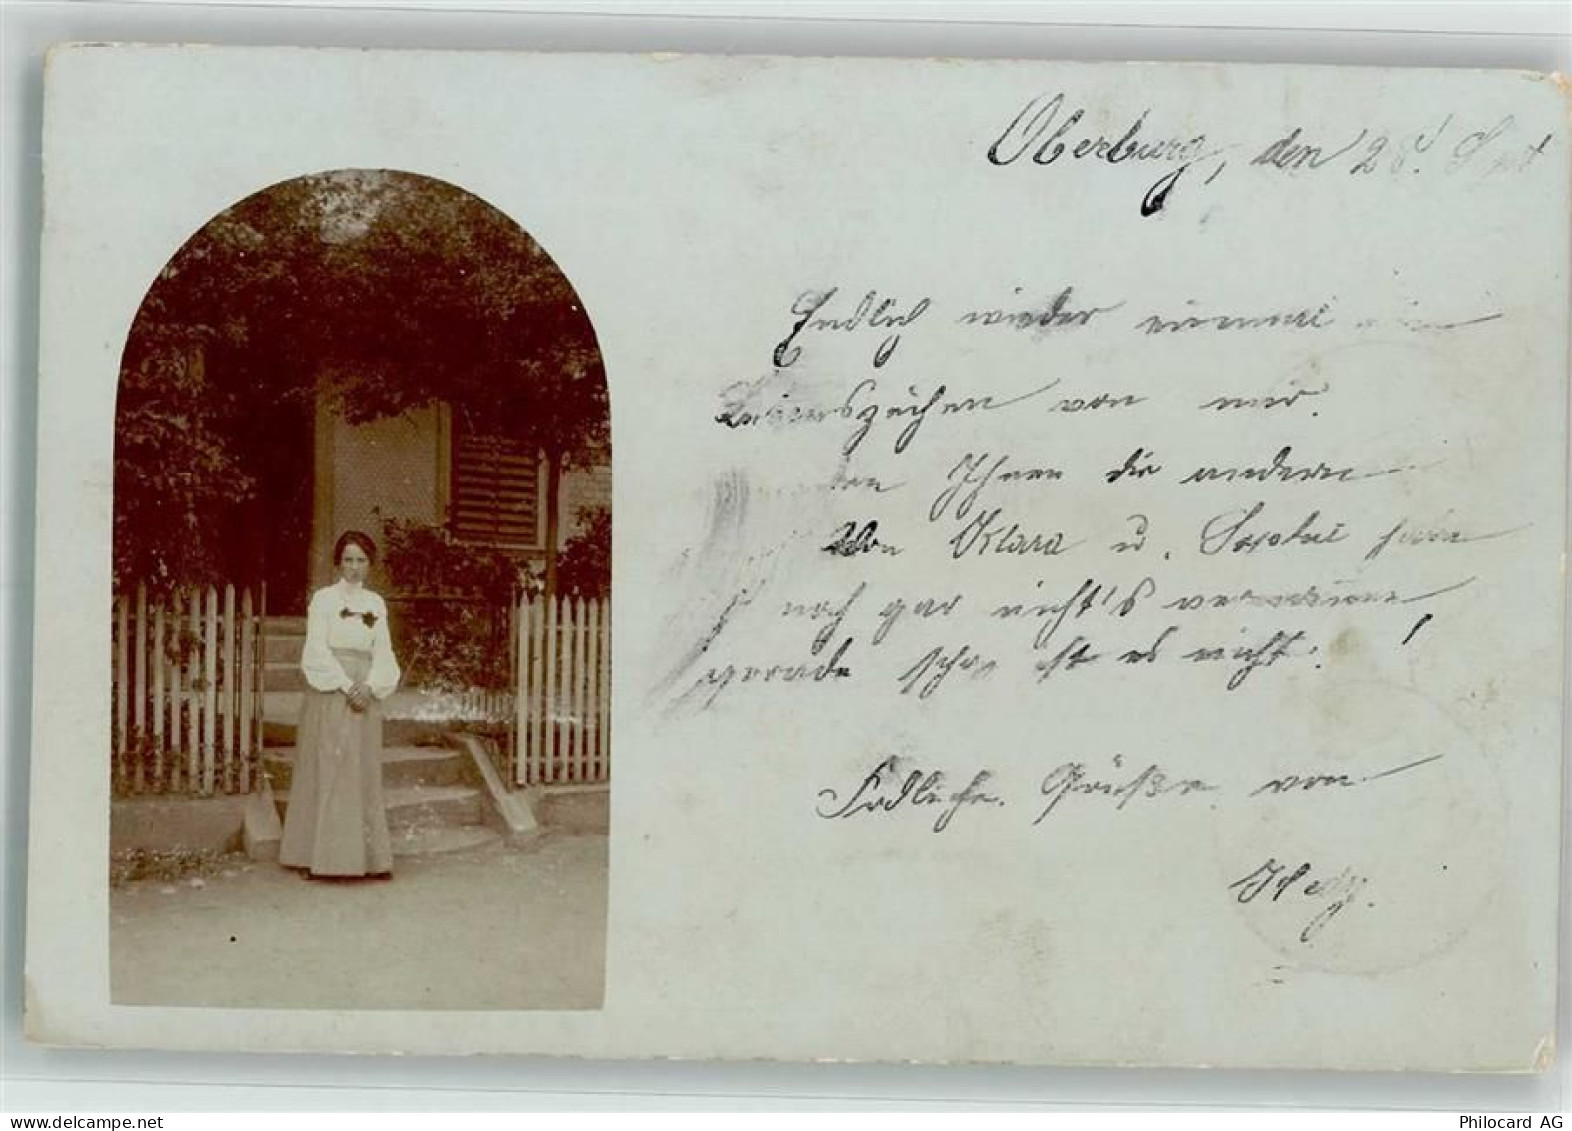 Oberburg, den 28. Sept
Endlich wieder einmal ein
Lebenszeichen von mir.
Ihnen die andern
Von Klara u. Sophie habe
noch gar nicht's vernommen
gerade schön ist es nicht!
Fr dliche Grüße von
Hedy.
Philocard AG